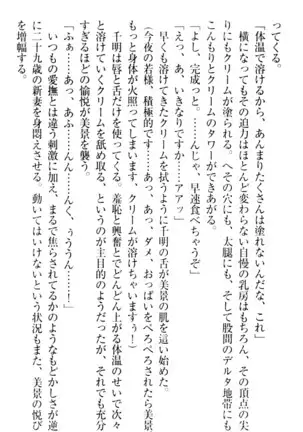 ってくる。
「体温で溶けるから、あんまりたくさんは塗れないんだな、これ」
横になってもその迫力はほとんど変わらない自慢の乳房はもちろん、その頂点の尖
りにもクリームが塗られる。へその穴にも、太腿にも、そして股間のデルタ地帯にも
こんもりとクリームのタワーができあがる。
「よし、完成っと。……んじゃ、早速食べちゃうぞ」
「えっ、あ、いきなりですか……アアッ」
早くも溶けてきたクリームを拭うように千明の舌が美景の肌を這い始めた。
(今夜の若様、積極的です……あっ、あっ、ダメ、おっぱいをぺろぺろされたら美景、
もっと身体が火照ってしまいます、クリームが溶けちゃいますぅ！)
千明は唇と舌だけを使ってくる。羞恥と興奮とでどんどん上がる体温のせいで次々
と溶けていくクリームを舐め取る、というのが主目的のようだったが、それだけでも
すぎるほどの愉悦が美景を襲う。
「ふぁ……あっ、あふ……んん……んっ、くぅ……ううん……！」
いつもの愛撫とは違う刺激に加え、まるで焦らされてるかのようなもどかしさが逆
に二十九歳の新妻を身悶えさせる。動いてはいけないという状況もまた、美景の悦び
を増幅する。